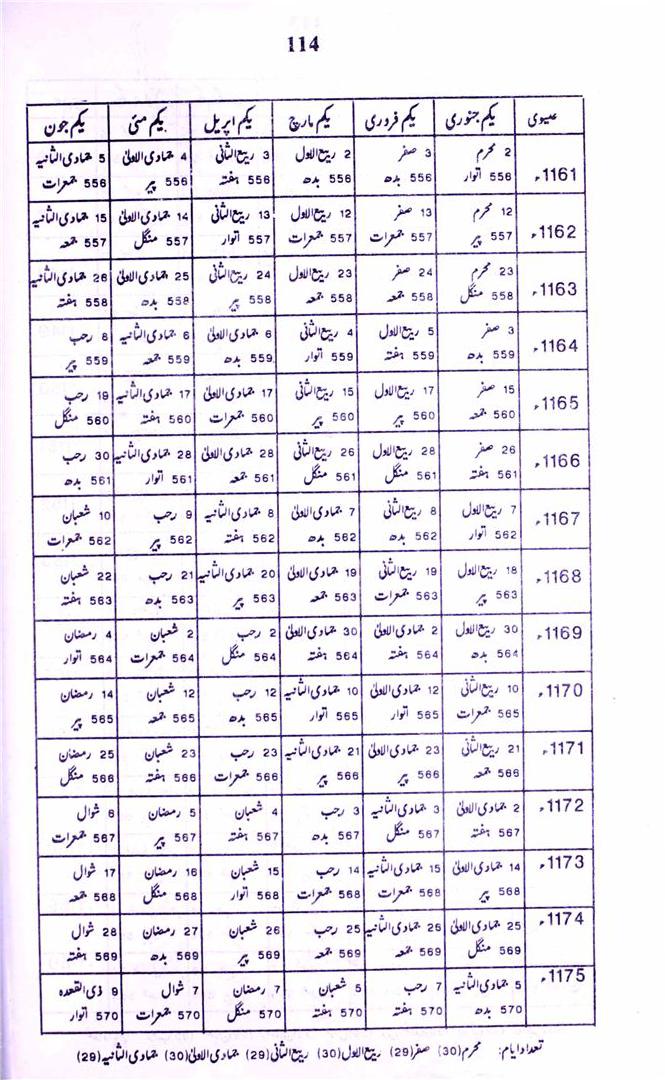 114
عیسوی یکم جنوری یکم فروری یکم مارچ یکم اپریل یکم مئی یکم جون
1161ء 2 محرم 3 صفر 2 ربیع الاول 3 ربیع الثانی 4 جمادی الاولیٰ 5 جمادی الثانیہ
556 اتوار 556 بدھ 556 بدھ 556 ہفتہ 556 پیر 556 جمعرات
1162ء 12 محرم 13 صفر 12 ربیع الاول 13 ربیع الثانی 14 جمادی الاولیٰ 15 جمادی الثانیہ
557 پیر 557 جمعرات 557 جمعرات 557 اتوار 557 منگل 557 جمعہ
1163ء 23 محرم 24 صفر 23 ربیع الاول 24 ربیع الثانی 25 جمادی الاولیٰ 26 جمادی الثانیہ
558 منگل 558 جمعہ 558 جمعہ 558 پیر 558 بدھ 558 ہفتہ
1164ء 3 صفر 5 ربیع الاول 4 ربیع الثانی 6 جمادی الاولیٰ 6 جمادی الثانیہ 8 رجب
559 بدھ 559 ہفتہ 559 اتوار 559 بدھ 559 جمعہ 559 پیر
1165ء 15 صفر 17 ربیع الاول 15 ربیع الثانی 17 جمادی الاولیٰ 17 جمادی الثانیہ 19 رجب
560 جمعہ 560 پیر 560 پیر 560 جمعرات 560 ہفتہ 560 منگل
1166ء 26 صفر 28 ربیع الاول 26 ربیع الثانی 28 جمادی الاولیٰ 28 جمادی الثانیہ 30 رجب
561 ہفتہ 561 منگل 561 منگل 561 جمعہ 561 اتوار 561 بدھ
1167ء 7 ربیع الاول 8 ربیع الثانی 7 جمادی الاولیٰ 8 جمادی الثانیہ 9 رجب 10 شعبان
562 اتوار 562 بدھ 562 بدھ 562 ہفتہ 562 پیر 562 جمعرات
1168ء 18 ربیع الاول 19 ربیع الثانی 19 جمادی الاولیٰ 20 جمادی الثانیہ 21 رجب 22 شعبان
563 پیر 563 جمعرات 563 جمعہ 563 پیر 563 بدھ 563 ہفتہ
1169ء 30 ربیع الاول 2 جمادی الاولیٰ 30 جمادی الاولیٰ 2 رجب 2 شعبان 4 رمضان
564 بدھ 564 ہفتہ 564 ہفتہ 564 منگل 564 جمعرات 564 اتوار
1170ء 10 ربیع الثانی 12 جمادی الاولیٰ 10 جمادی الثانیہ 12 رجب 12 شعبان 14 رمضان
565 جمعرات 565 اتوار 565 اتوار 565 بدھ 565 جمعہ 565 پیر
1171ء 21 ربیع الثانی 23 جمادی الاولیٰ 21 جمادی الثانیہ 23 رجب 23 شعبان 25 رمضان
566 جمعہ 566 پیر 566 پیر 566 جمعرات 566 ہفتہ 566 منگل
1172ء 2 جمادی الاولیٰ 3 جمادی الثانیہ 3 رجب 4 شعبان 5 رمضان 6 شوال
567 ہفتہ 567 منگل 567 بدھ 567 ہفتہ 567 پیر 567 جمعرات
1173ء 14 جمادی الاولیٰ 15 جمادی الثانیہ 14 رجب 15 شعبان 16 رمضان 17 شوال
568 پیر 568 جمعرات 568 جمعرات 568 اتوار 568 منگل 568 جمعہ
1174ء 25 جمادی الاولیٰ 26 جمادی الثانیہ 25 رجب 26 شعبان 27 رمضان 28 شوال
569 منگل 569 جمعہ 569 جمعہ 569 پیر 569 بدھ 569 ہفتہ
1175ء 5 جمادی الثانیہ 7 رجب 5 شعبان 7 رمضان 7 شوال 9 ذی القعدہ
570 بدھ 570 ہفتہ 570 ہفتہ 570 منگل 570 جمعرات 570 اتوار
تعداد ایام: محرم (30) صفر (29) ربیع الاول (30) ربیع الثانی (29) جمادی الاولیٰ (30) جمادی الثانیہ (29)